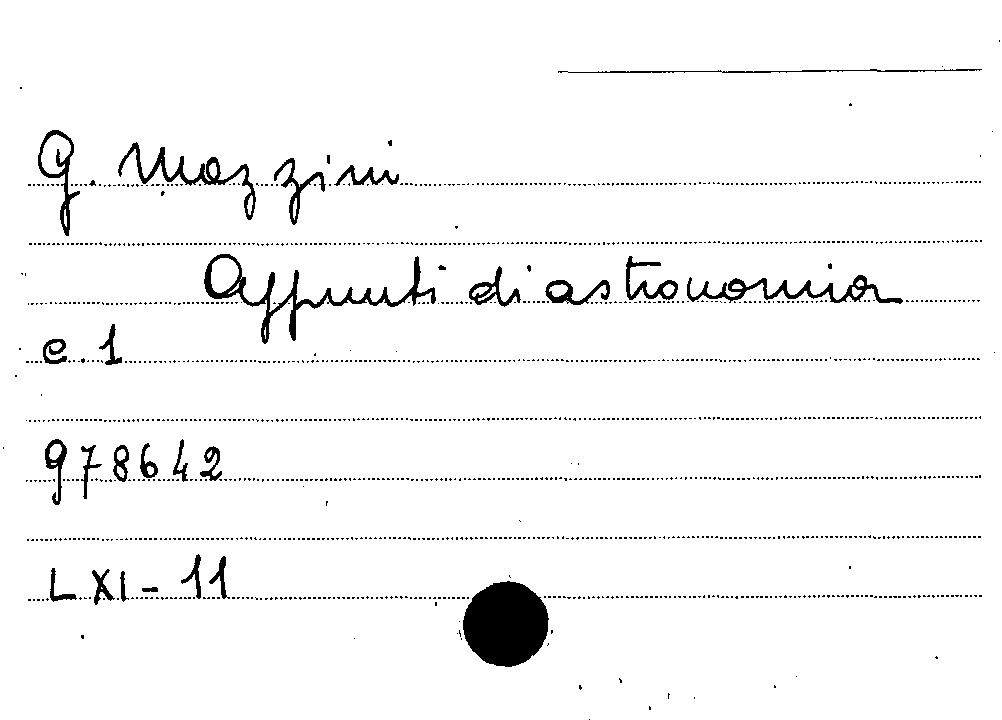 G. Mazzini
Appunti di astronomia
c. 1
978642
LXI - 11